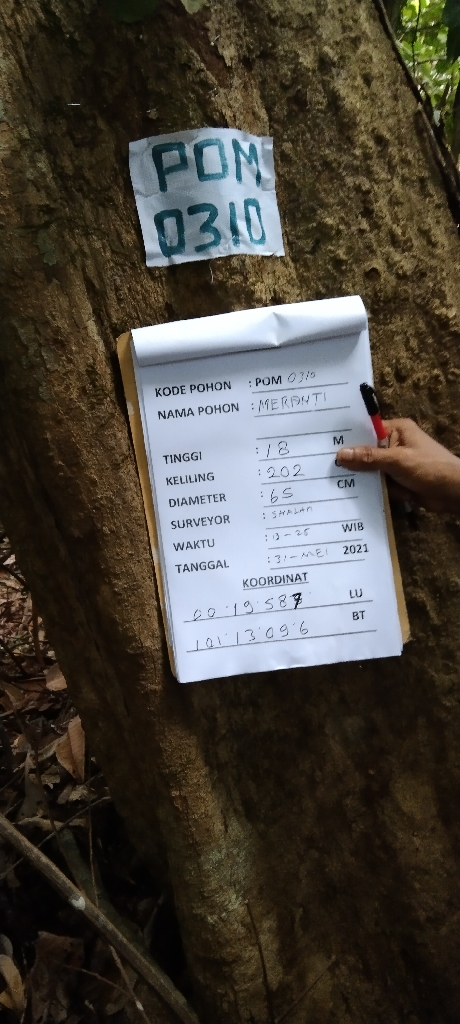 POM
0310
KODE POHON : POM 0310
NAMA POHON : MERANTI
TINGGI : 18 M
KELILING : 202
DIAMETER : 65 CM
SURVEYOR :
WAKTU : WIB
TANGGAL : 31-MEI 2021
KOORDINAT
00°19'58 LU
101°13'09'6 BT